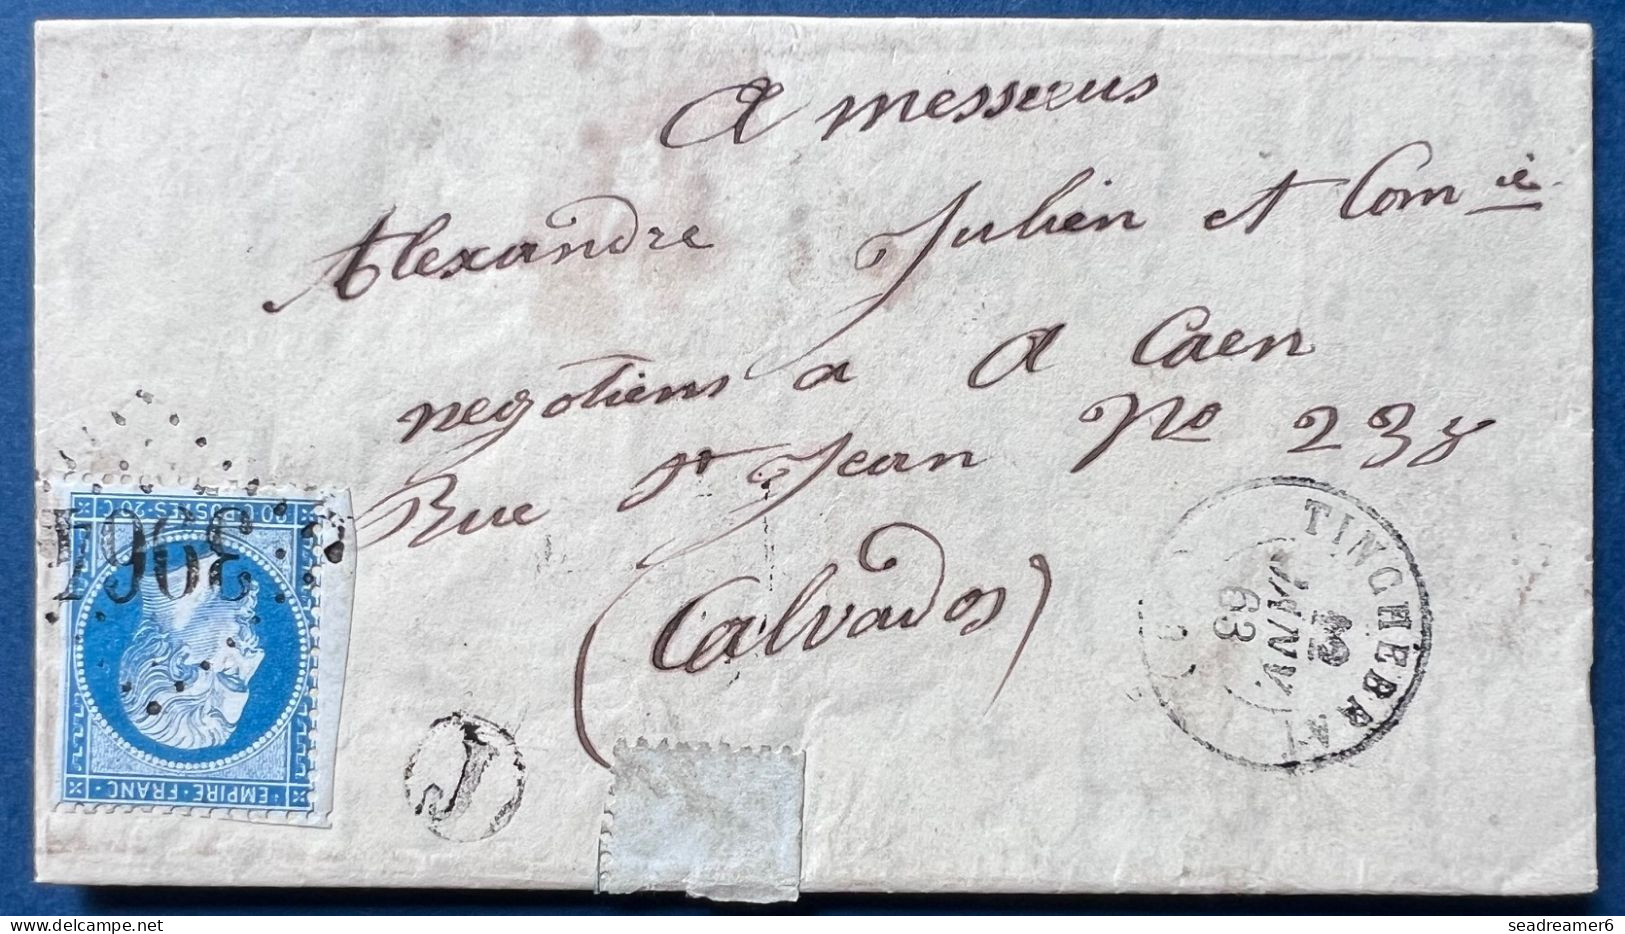 A messieurs
Alexandre Julien et Comie
negotiens a A Caen
Rue St Jean No 238
(Calvados)
TINCHEBRAY
3
JANV.
63
3964
20 C POSTES 20 C
EMPIRE · FRANC ·
J
© seadreamer6 / delcampe.net